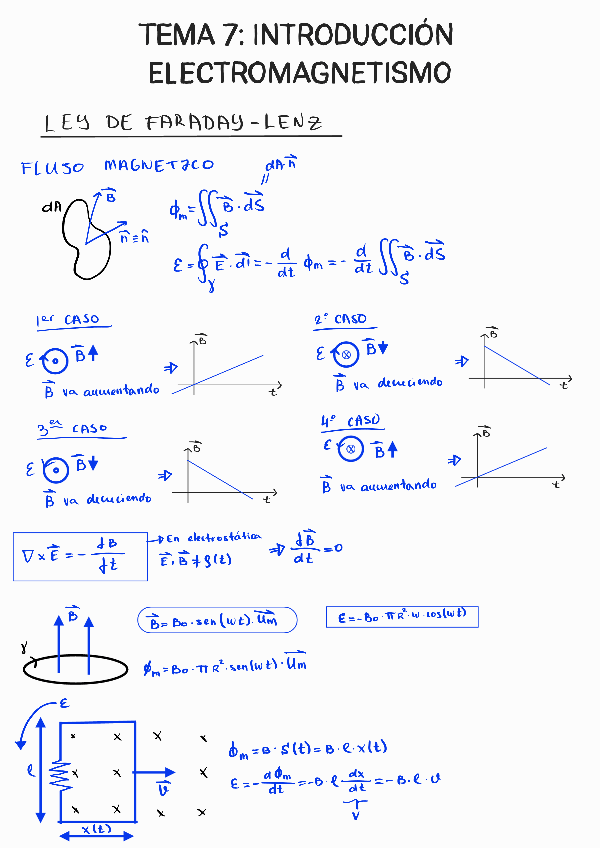 TEMA 7: INTRODUCCIÓN
ELECTROMAGNETISMO
LEY DE FARADAY-LENZ
FLUSO MAGNETICO
dA n̂
//
dA
B⃗
n̂ ≡ n̂
ϕm = ∬S B⃗ · dS⃗
ε = ∮γ E⃗ · dl⃗ = - d/dt ϕm = - d/dt ∬S B⃗ · dS⃗
1er CASO
ε B⃗ ↑ ⇒ B⃗ t
B⃗ va aumentando
2º CASO
ε B⃗ ↓ ⇒ B⃗ t
B⃗ va decreciendo
3er CASO
ε B⃗ ↓ ⇒ B⃗ t
B⃗ va decreciendo
4º CASO
ε B⃗ ↑ ⇒ B⃗ t
B⃗ va aumentando
∇ x E⃗ = - ∂B/∂t
En electrostática
E⃗, B⃗ ≠ f(t) ⇒ dB⃗/dt = 0
B⃗
γ
B⃗ = Bo · sen(wt) · Um⃗
ε = -Bo · π R² · w · cos(wt)
ϕm = Bo · π R² · sen(wt) · Um⃗
ε
x x x x
ℓ
x x x x
v⃗
x x x x
x(t)
ϕm = B · S(t) = B · ℓ · x(t)
ε = - dϕm/dt = -B · ℓ dx/dt = -B · ℓ · v
v